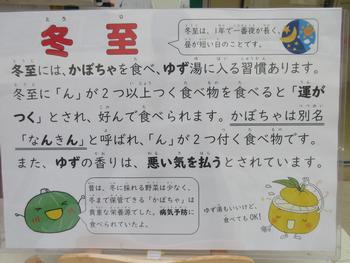 冬至
とうじ
冬至は、1年で一番夜が長く、
昼が短い日のことです。
冬至には、かぼちゃを食べ、ゆず湯に入る習慣あります。
冬至に「ん」が2つ以上つく食べ物を食べると「運が
つく」とされ、好んで食べられます。かぼちゃは別名
「なんきん」と呼ばれ、「ん」が2つ付く食べ物です。
また、ゆずの香りは、悪い気を払うとされています。
昔は、冬に採れる野菜は少なく、
冬まで保管できる「かぼちゃ」は
貴重な栄養源でした。病気予防に
食べられていたよ。
ゆず湯もいいけど、
食べてもOK!